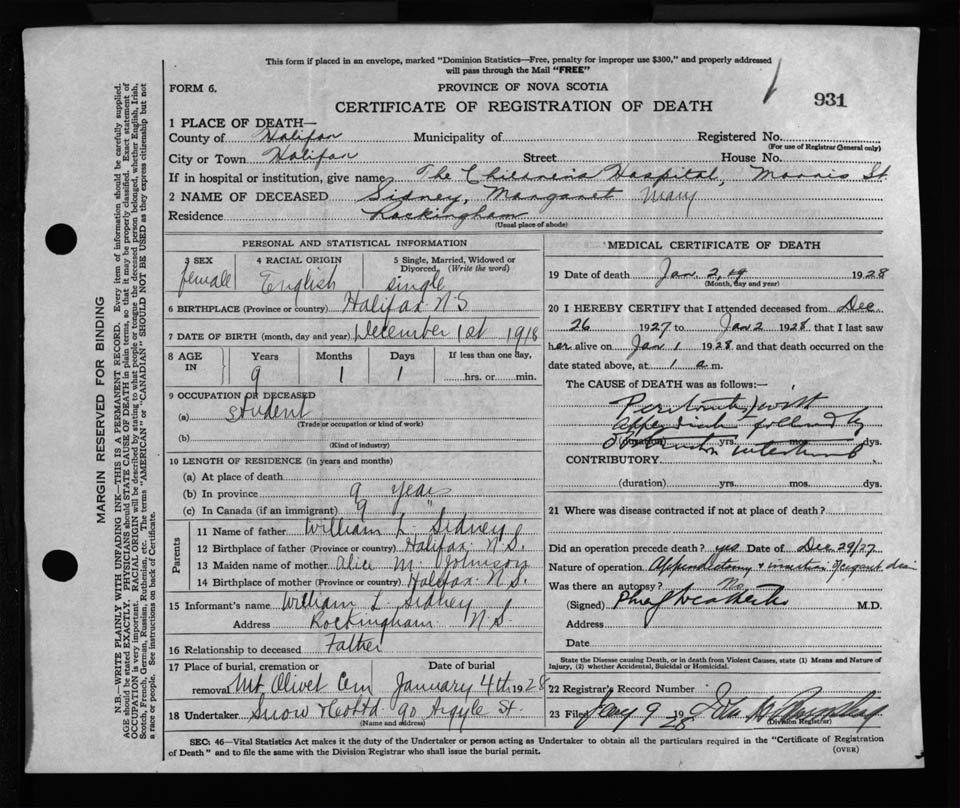 This form if placed in an envelope, marked "Dominion Statistics—Free, penalty for improper use $300," and properly addressed
will pass through the Mail "FREE"
FORM 6. PROVINCE OF NOVA SCOTIA
CERTIFICATE OF REGISTRATION OF DEATH
931
1 PLACE OF DEATH—
County of Halifax Municipality of Registered No.
(For use of Registrar General only)
City or Town Halifax Street House No.
If in hospital or institution, give name The Children's Hospital, Morris St.
2 NAME OF DECEASED Sidney, Margaret Mary
Residence Rockingham
(Usual place of abode)
PERSONAL AND STATISTICAL INFORMATION
3 SEX 4 RACIAL ORIGIN 5 Single, Married, Widowed or
Divorced, (Write the word)
female English single
6 BIRTHPLACE (Province or country) Halifax N S
7 DATE OF BIRTH (month, day and year) December 1st 1918
8 AGE IN Years Months Days If less than one day,
9 1 1 hrs. or min.
9 OCCUPATION OF DECEASED
(a) student
(Trade or occupation or kind of work)
(b)
(Kind of industry)
10 LENGTH OF RESIDENCE (in years and months)
(a) At place of death
(b) In province 9 years
(c) In Canada (if an immigrant) 9 "
Parents
11 Name of father William L. Sidney
12 Birthplace of father (Province or country) Halifax N.S.
13 Maiden name of mother Alice M Johnson
14 Birthplace of mother (Province or country) Halifax N.S.
15 Informant's name William L. Sidney
Address Rockingham N.S.
16 Relationship to deceased Father
17 Place of burial, cremation or Date of burial
removal Mt Olivet Cem January 4th 1928
18 Undertaker Snow & Co Ltd 90 Argyle St.
(Name and address)
MEDICAL CERTIFICATE OF DEATH
19 Date of death Jan 2, 1928
(Month, day and year)
20 I HEREBY CERTIFY that I attended deceased from Dec
26 1927 to Jan 2 1928, that I last saw
her alive on Jan 1 1928 and that death occurred on the
date stated above, at 1 a m.
The CAUSE OF DEATH was as follows:—
followed by
(duration) yrs. mos. dys.
CONTRIBUTORY
(duration) yrs. mos. dys.
21 Where was disease contracted if not at place of death?
Did an operation precede death? yes Date of Dec 29/27
Nature of operation Appendectomy +
Was there an autopsy? No
(Signed) M.D.
Address
Date
State the Disease causing Death, or in death from Violent Causes, state (1) Means and Nature of
Injury, (2) whether Accidental, Suicidal or Homicidal.
22 Registrar's Record Number
23 Filed Jany 9 1928
(Division Registrar)
SEC: 46—Vital Statistics Act makes it the duty of the Undertaker or person acting as Undertaker to obtain all the particulars required in the "Certificate of Registration
of Death" and to file the same with the Division Registrar who shall issue the burial permit. (OVER)
MARGIN RESERVED FOR BINDING
N.B.—WRITE PLAINLY WITH UNFADING INK—THIS IS A PERMANENT RECORD. Every item of information should be carefully supplied.
AGE should be stated EXACTLY. PHYSICIANS should STATE CAUSE OF DEATH in plain terms, so that it may be properly classified. Exact statement of
OCCUPATION is very important. RACIAL ORIGIN will be described by stating to what people or tongue the deceased person belonged, whether English, Irish,
Scotch, French, German, Russian, Ruthenian, etc. The terms "AMERICAN" or "CANADIAN" SHOULD NOT BE USED as they express citizenship but not
a race or people. See instructions on back of Certificate.